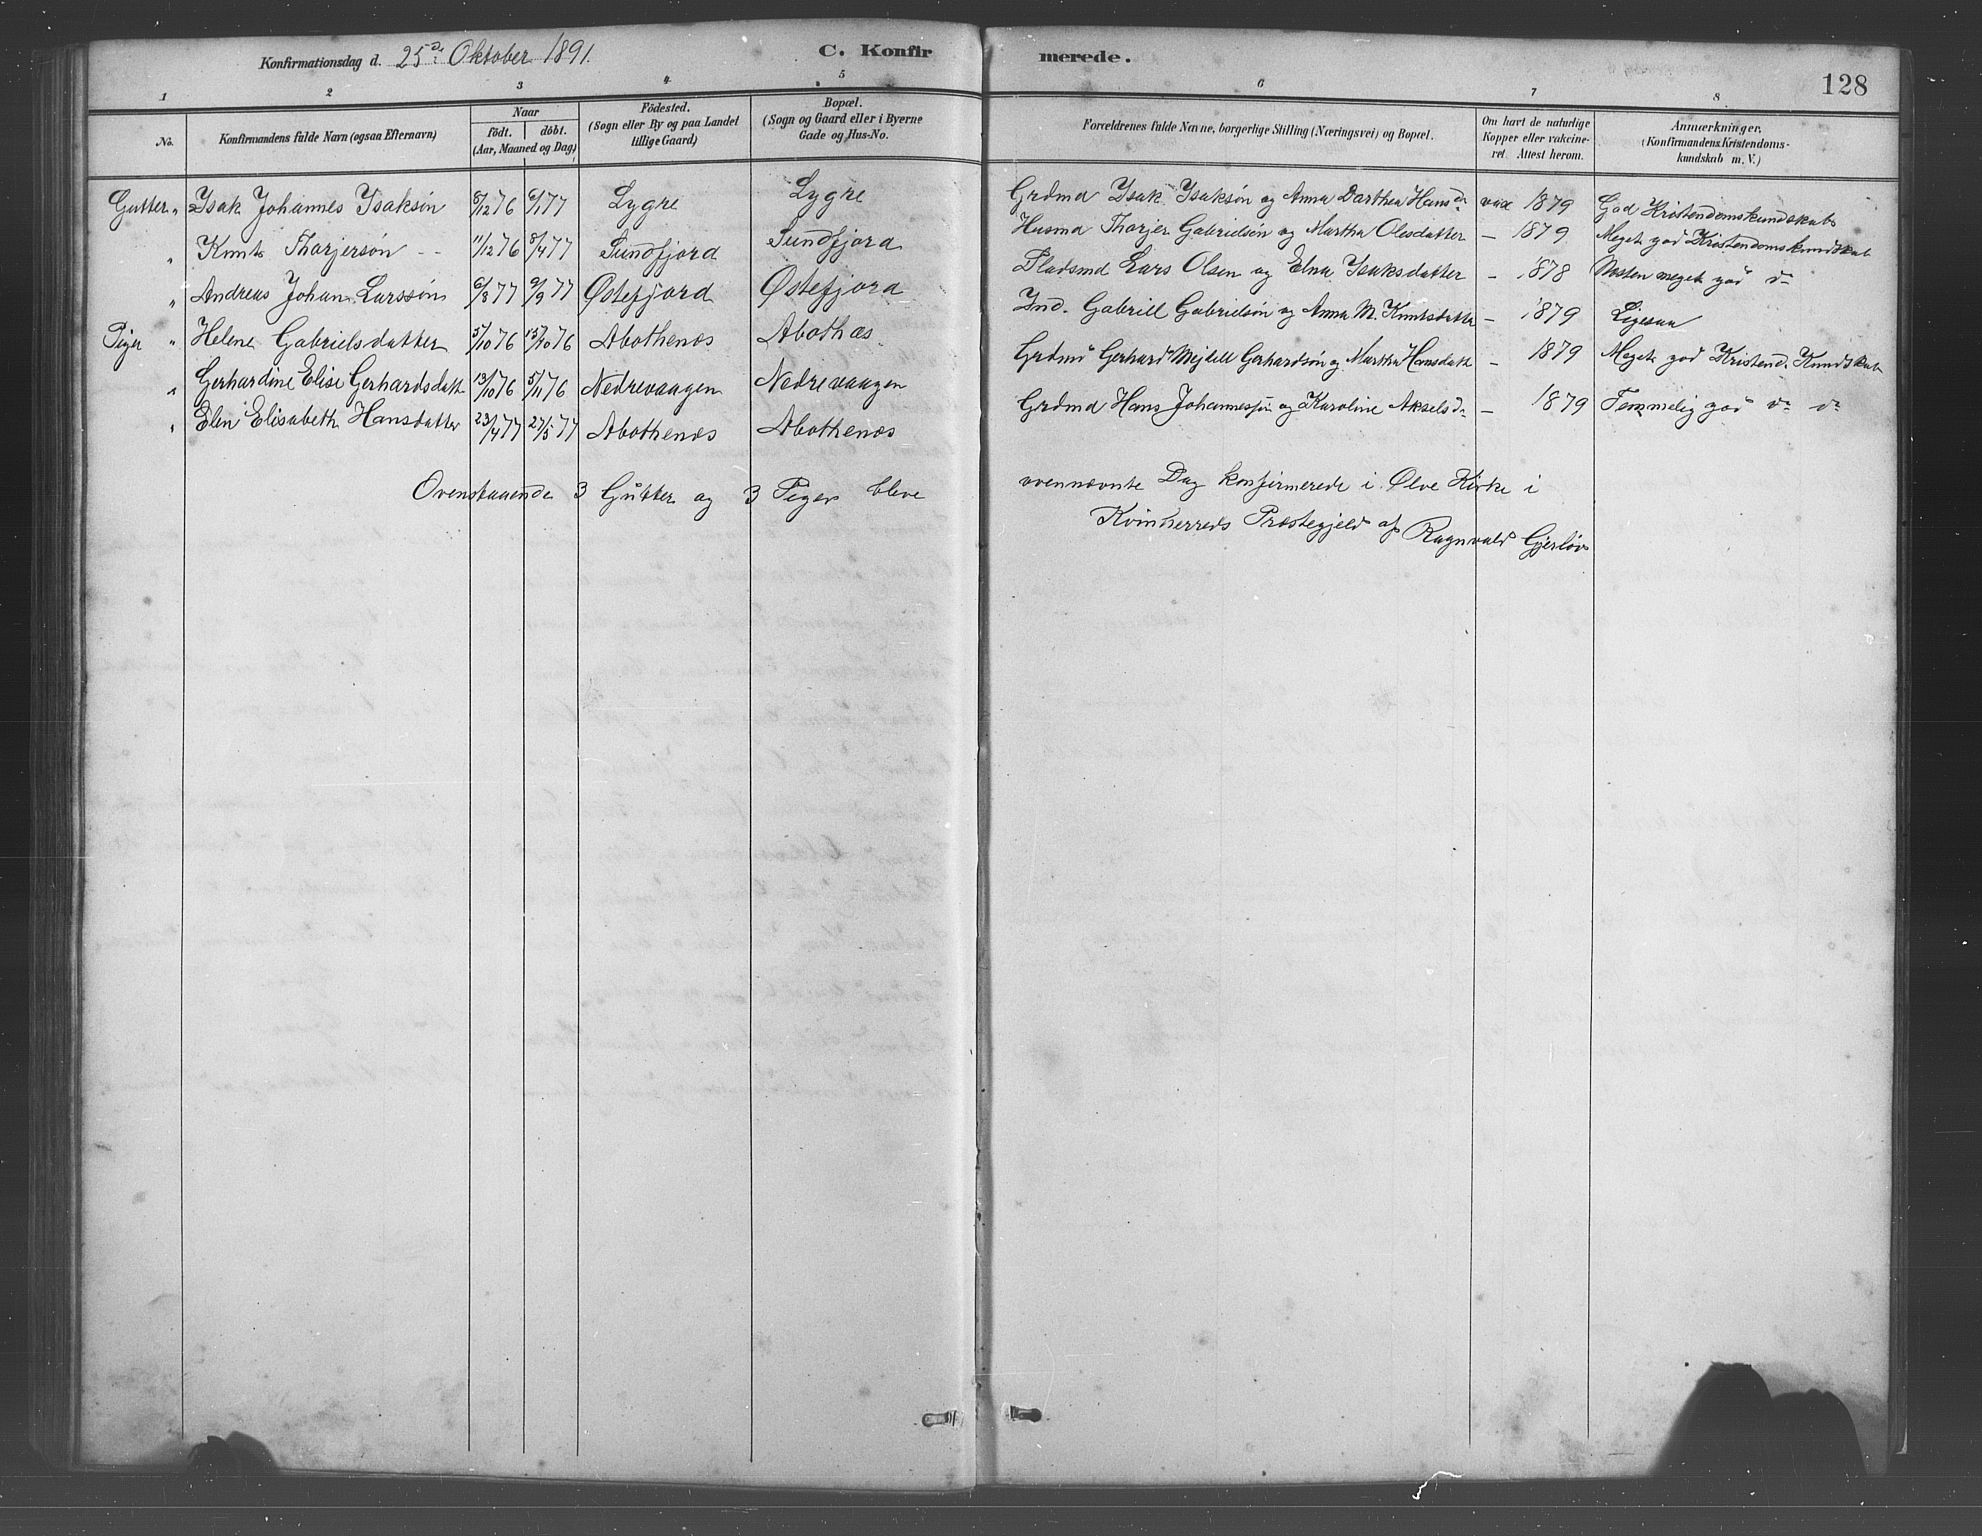 Konfirmationsdag d. 25de Oktober 1891.
C. Konfirmerede.
128
1 2 3 4 5 6 7 8
No.
Konfirmandens fulde Navn (ogsaa Efternavn)
Naar
födt. döbt.
(Aar, Maaned og Dag)
Födested.
(Sogn eller By og paa Landet
tillige Gaard)
Bopæl.
(Sogn og Gaard eller i Byerne
Gade og Hus-No.
Forældrenes fulde Navne, borgerlige Stilling (Næringsvei) og Bopæl.
Om havt de naturlige
Kopper eller vakcine-
ret Attest herom.
Anmærkninger.
(Konfirmandens Kristendoms-
kundskab m. V.)
Gutter " Isak Johannes Isaksön 8/12 76 6/1 77 Lygre Lygre Grdmd Isak Isaksön og Anna Dorthea Hansdr vax 1879 God Kristendomskundskab
" Knut Thorjersön 11/12 76 8/4 77 Sundfjord Sundfjord Husmd Thorjer Gabrielsön og Martha Olesdatter — 1879 Meget god Kristendomskundskab
" Andreas Johan Larssön 6/8 77 9/9 77 Østefjord Østefjord Pladsmd Lars Olsen og Elna Isaksdatter — 1878 Næsten meget god do
Piger " Helene Gabrielsdatter 5/10 76 15/10 76 Abothenæs Abothæs Ind. Gabriell Gabrielsön og Anna M. Knutsdatter — 1879 Ligesaa
" Gerhardine Elise Gerhardsdatt 13/10 76 5/11 76 Nedrevaagen Nedrevaagen Grdmd Gerhard Mejdell Gerhardsön og Martha Hansdatt — 1879 Meget god Kristend. Kundskab
" Elen Elisabeth Hansdatter 23/4 77 27/5 77 Abothenæs Abothenæs Grdmd Hans Johannessön og Karoline Akselsdr — 1879 Temmelig god do do
Ovenstaaende 3 Gutter og 3 Piger bleve ovennævnte Dag konfirmerede i Ølve Kirke i
Kvinherreds Præstegjeld af Ragnvald Gjerløv